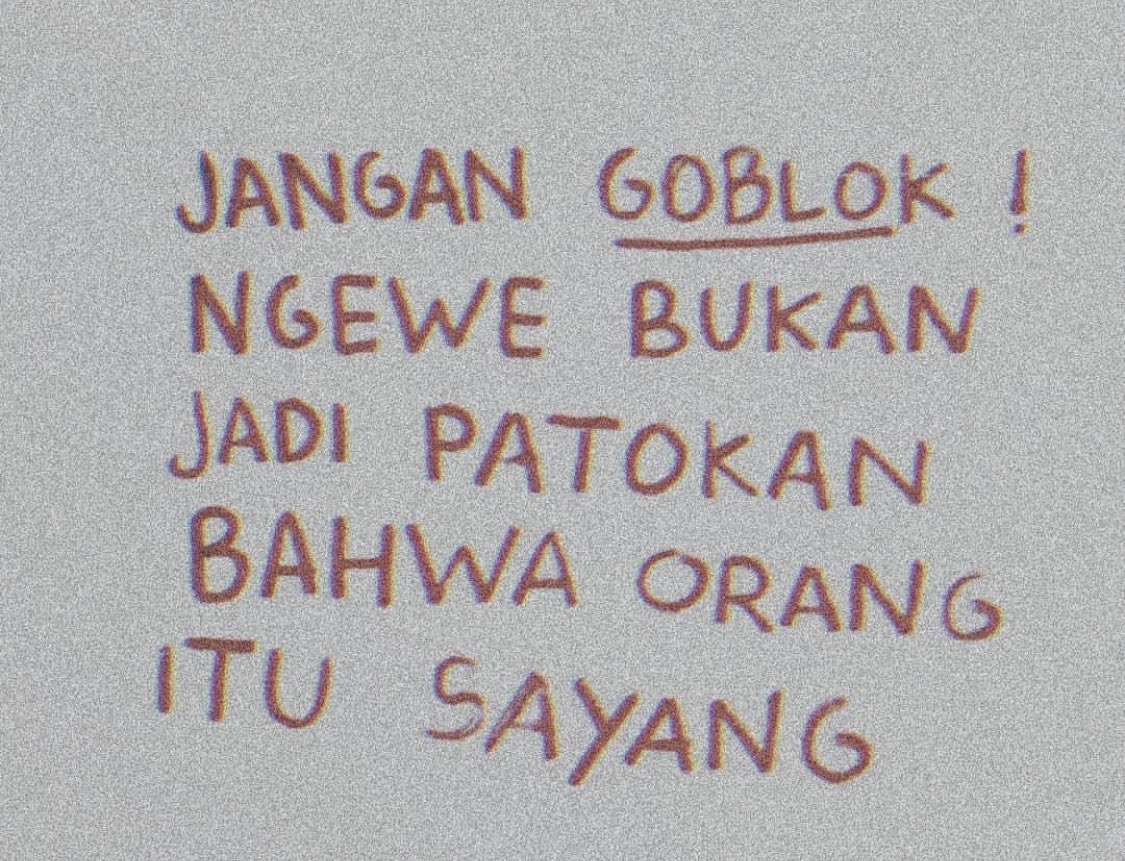 JANGAN GOBLOK !
NGEWE BUKAN
JADI PATOKAN
BAHWA ORANG
ITU SAYANG